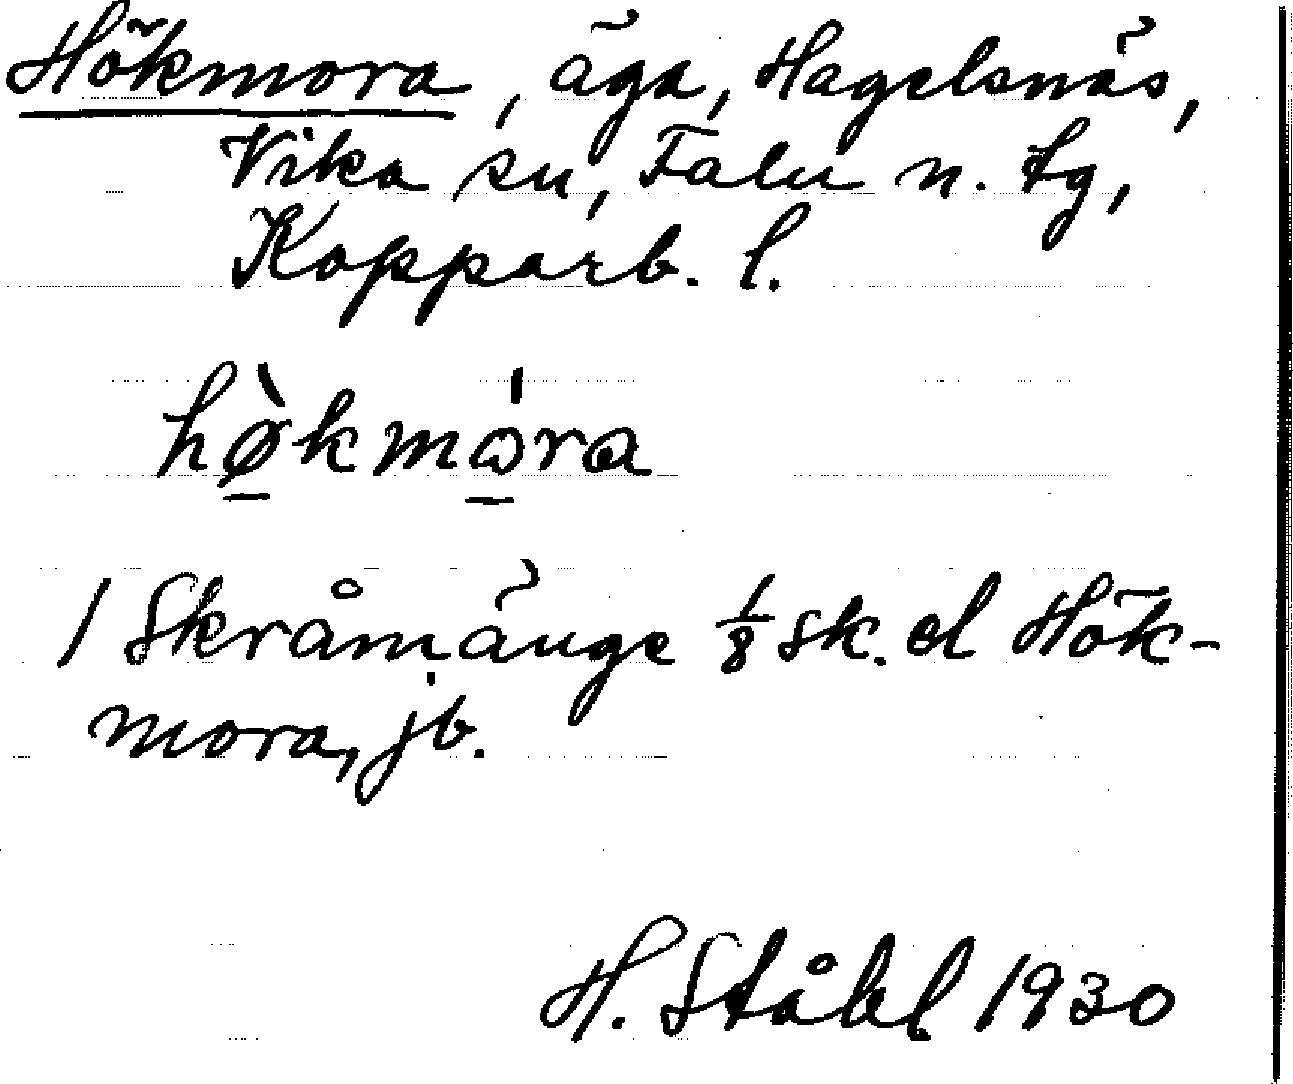 Hökmora, äga, Hagelsnäs,
Vika sn, Falu n. tg,
Kopparb. l.
hø̀kmɷ̍ra
1 Skråmänge 1/8 sk. el Hök-
mora, jb.
H. Ståhl 1930